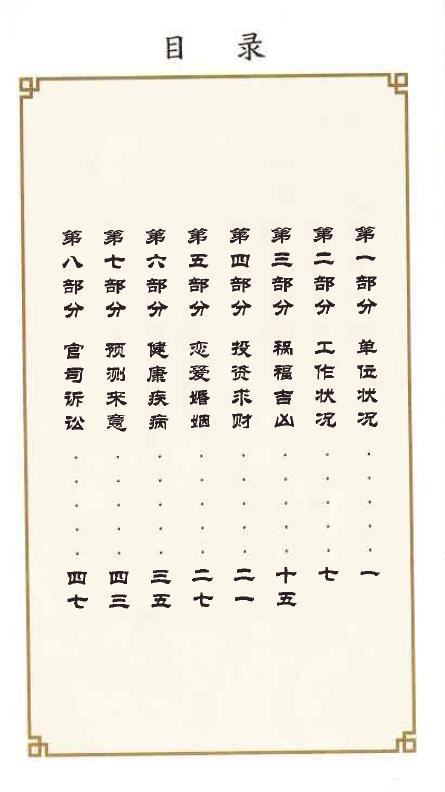 目 录
第一部分 单位状况 · · · · · 一
第二部分 工作状况 · · · · · 七
第三部分 祸福吉凶 · · · · · 十五
第四部分 投资求财 · · · · · 二一
第五部分 恋爱婚姻 · · · · · 二七
第六部分 健康疾病 · · · · · 三五
第七部分 预测来意 · · · · · 四三
第八部分 官司诉讼 · · · · · 四七